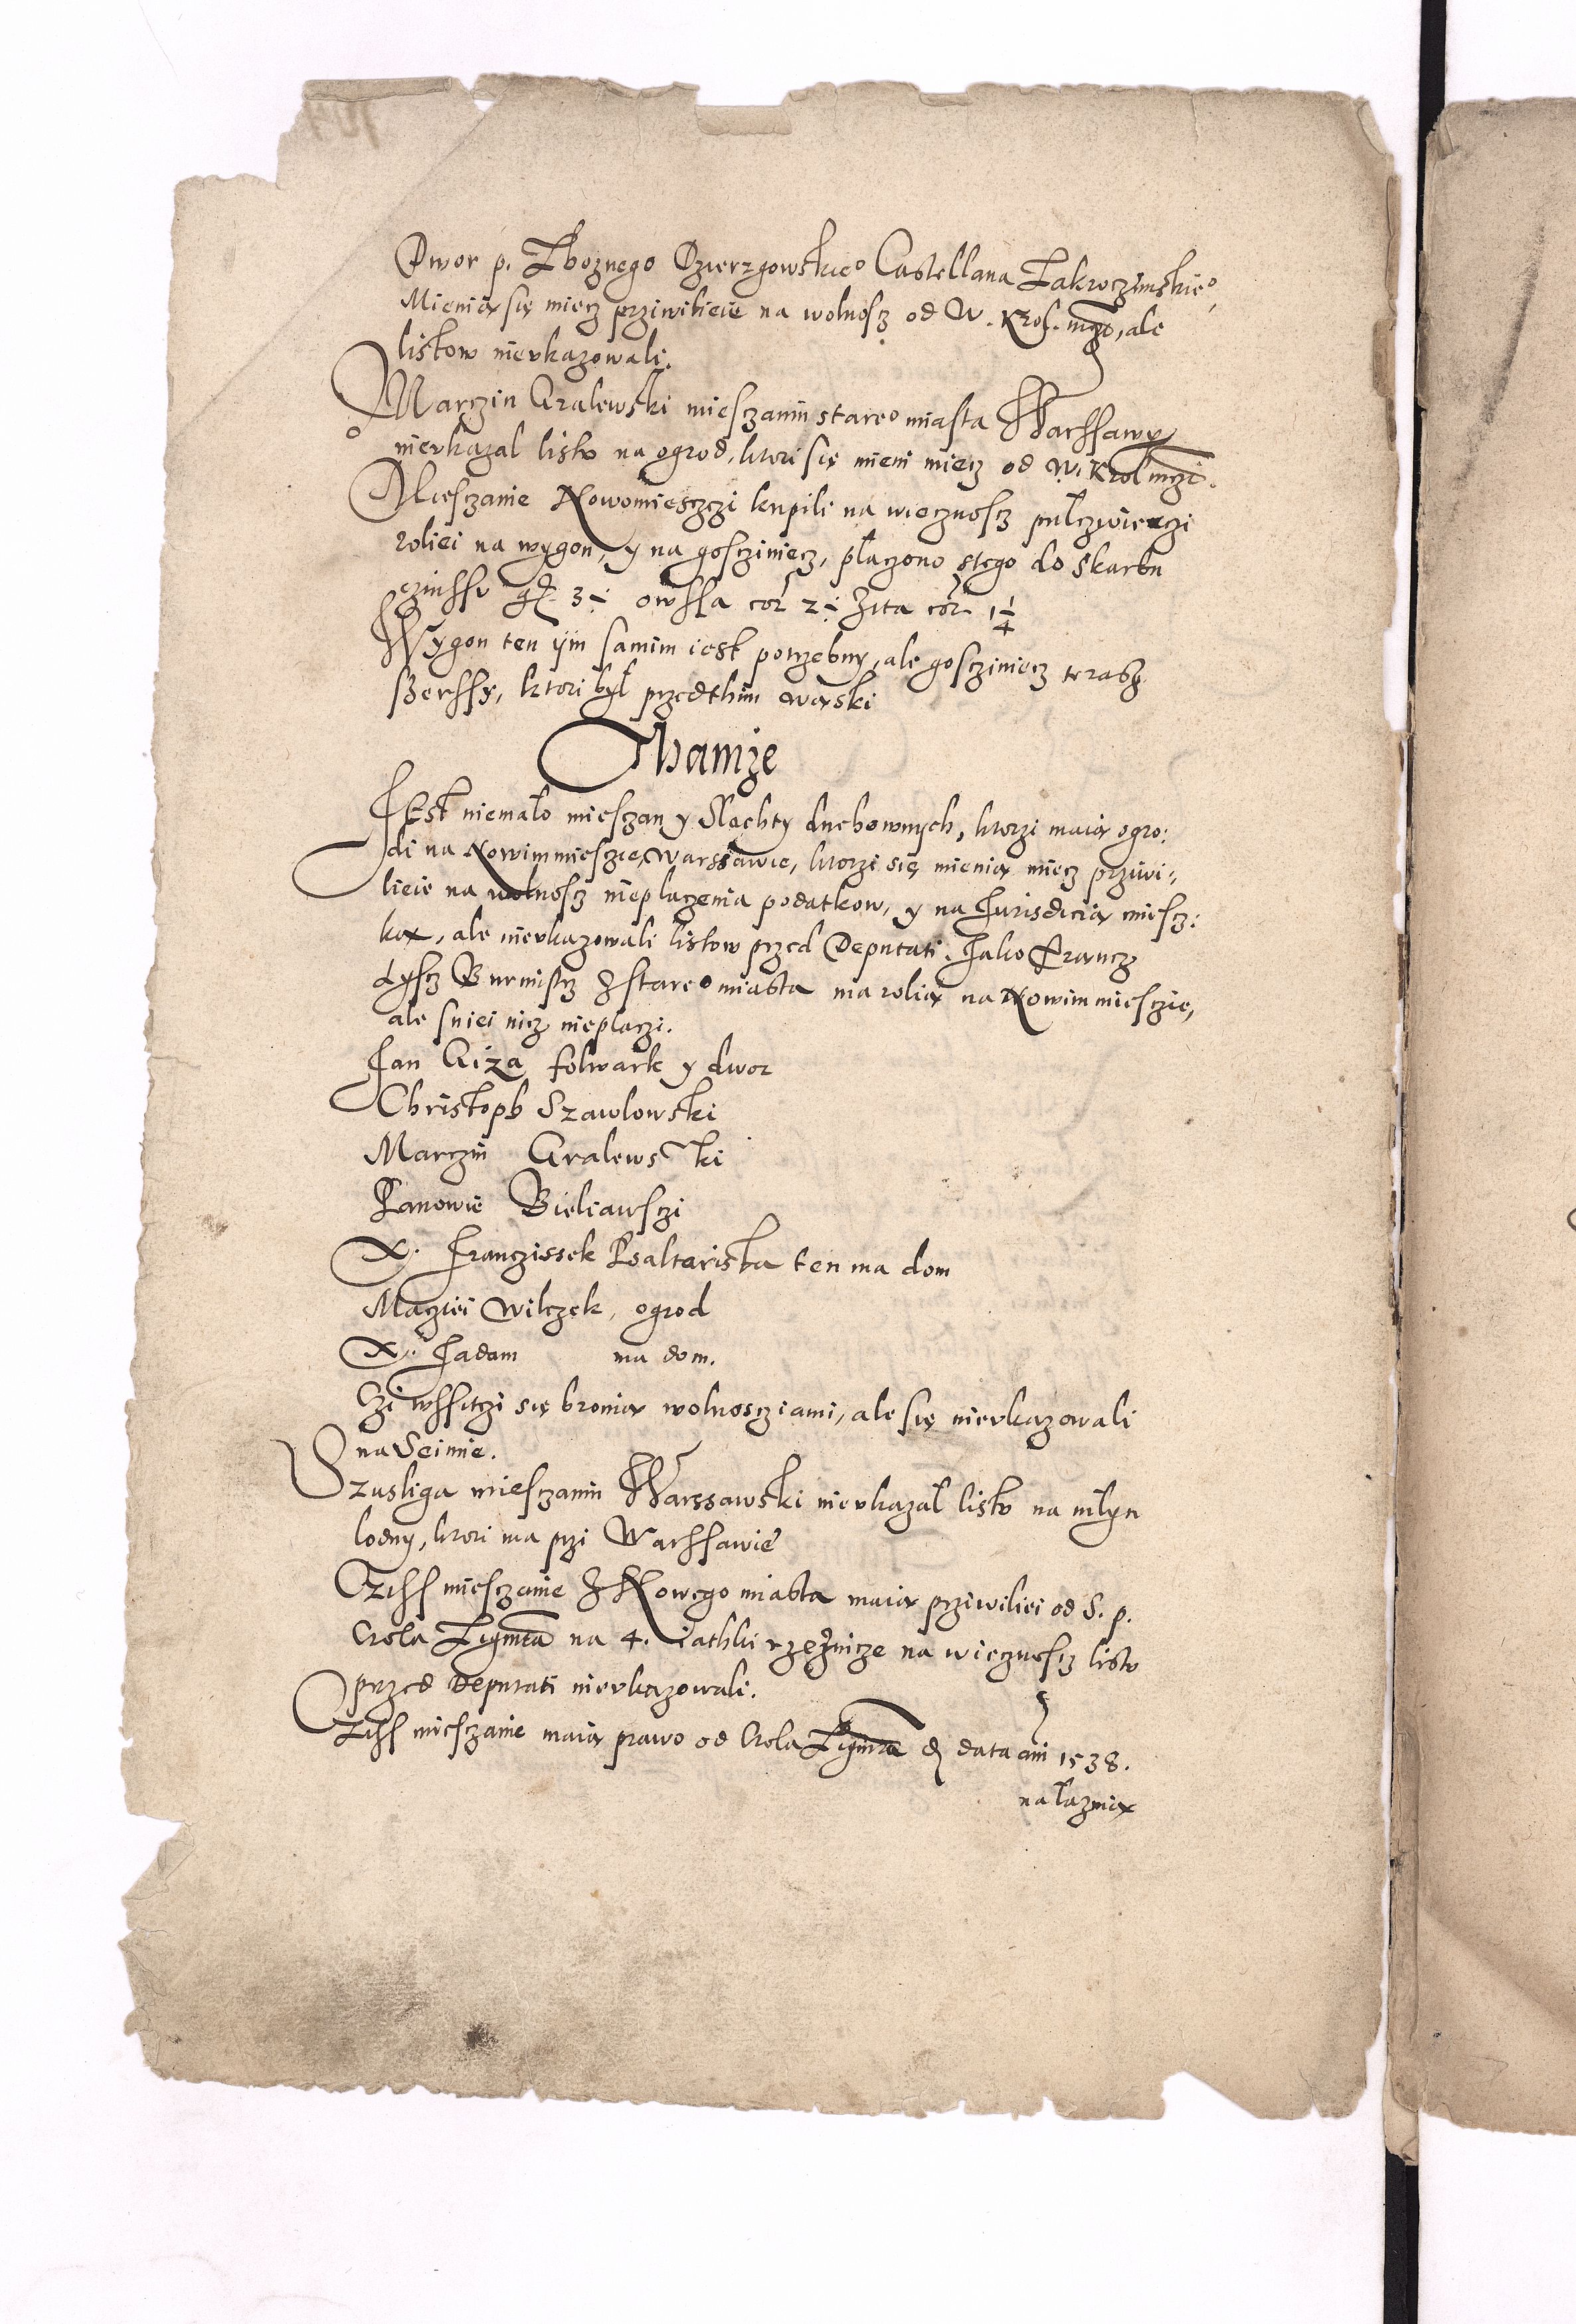 Dwor p. Zboznego Dzierzgowskieo Castellana Zakroczimskieo,
Mienią się miecz prziwilieie na wolnoscz od W. Krol. mczi, ale
listow nieukazowali.
Marczin Gralewski miesczanin stareo miasta Warssawy
nieukazal listu na ogrod, ktori się mieni miecz od W. Krol mczi.
Miesczanie Nowomiesczczi kupili na wiecznoscz pulczwierczi
roliei na wygon, y na goscziniecz, płaczono stego do skarbu
czinssu gr. 3÷ owssa cor 2÷ Żita cor. 1¼
Wygon ten ÿm samim iest potrzebny, ale goscziniecz terasz
szerssy, ktori był przedthim wąski
Thamże
JEst niemało miesczan y Slachty duchownych, ktorzi maią ogro:
di na Nowimmiesczie Warssawie, ktorzi się mienią miecz prziwi:
lieie na wolnoscz nieplaczenia podatkow, y na Jurisdicią miescz:
ką, ale nieukazowali listow przed Deputati. Jako Francz
dyscz Burmistrz Z stareo miasta ma rolią na Nowimmiesczie,
ale sniei nicz nieplaczi.
Jan Giza folwark y dwor
Christoph Szawlowski
Marczin Gralewski
Panowie Bieliawsczi
X. Franczissek Psalterista ten ma dom
Macziei Wilczek, ogrod
X. Jadam ma dom.
Czi wssitczi się bronią wolnoscziami, ale się nieukazowali
na Seimie.
Szusliga miesczanin Warssawski nieukazał listu na młyn
lodny, ktori ma przi Warssawie
Cziss miesczanie Z Nowego miasta maią prziwiliei od S. p.
Crola Zigmta na 4. iathki rzeżnicze na wiecznoscz listu
przed Deputati nieukazowali.
Cziss miesczanie maią prawo od Crola Zigmta de data ani 1538.
na łaznią